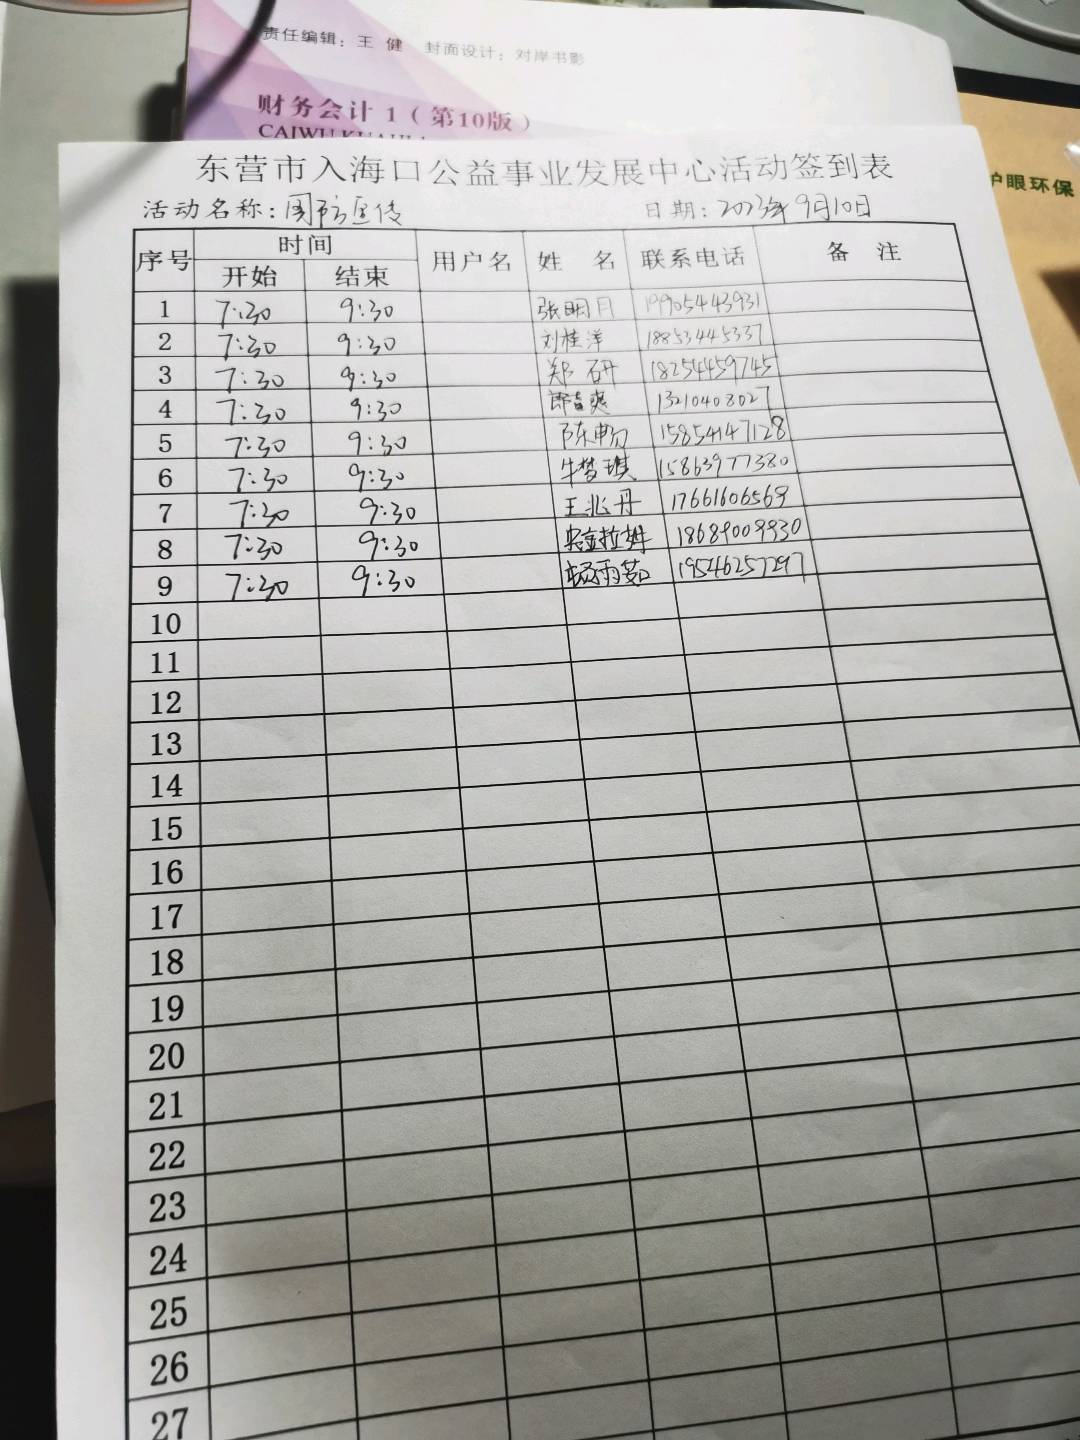 责任编辑：王 健 封面设计：对岸书影
财务会计1（第10版）
护眼环保
东营市入海口公益事业发展中心活动签到表
活动名称：国防宣传 日期：2023年9月10日
序号 时间 用户名 姓 名 联系电话 备 注
开始 结束
1 7:30 9:30 张明月 19905443931
2 7:30 9:30 刘桂洋 18853445337
3 7:30 9:30 郑研 18254459745
4 7:30 9:30 13210408027
5 7:30 9:30 陈畅 15854147128
6 7:30 9:30 牛梦琪 15863977380
7 7:30 9:30 王兆丹 17661606569
8 7:30 9:30 18689009930
9 7:30 9:30 杨雨茹 19546257297
10
11
12
13
14
15
16
17
18
19
20
21
22
23
24
25
26
27